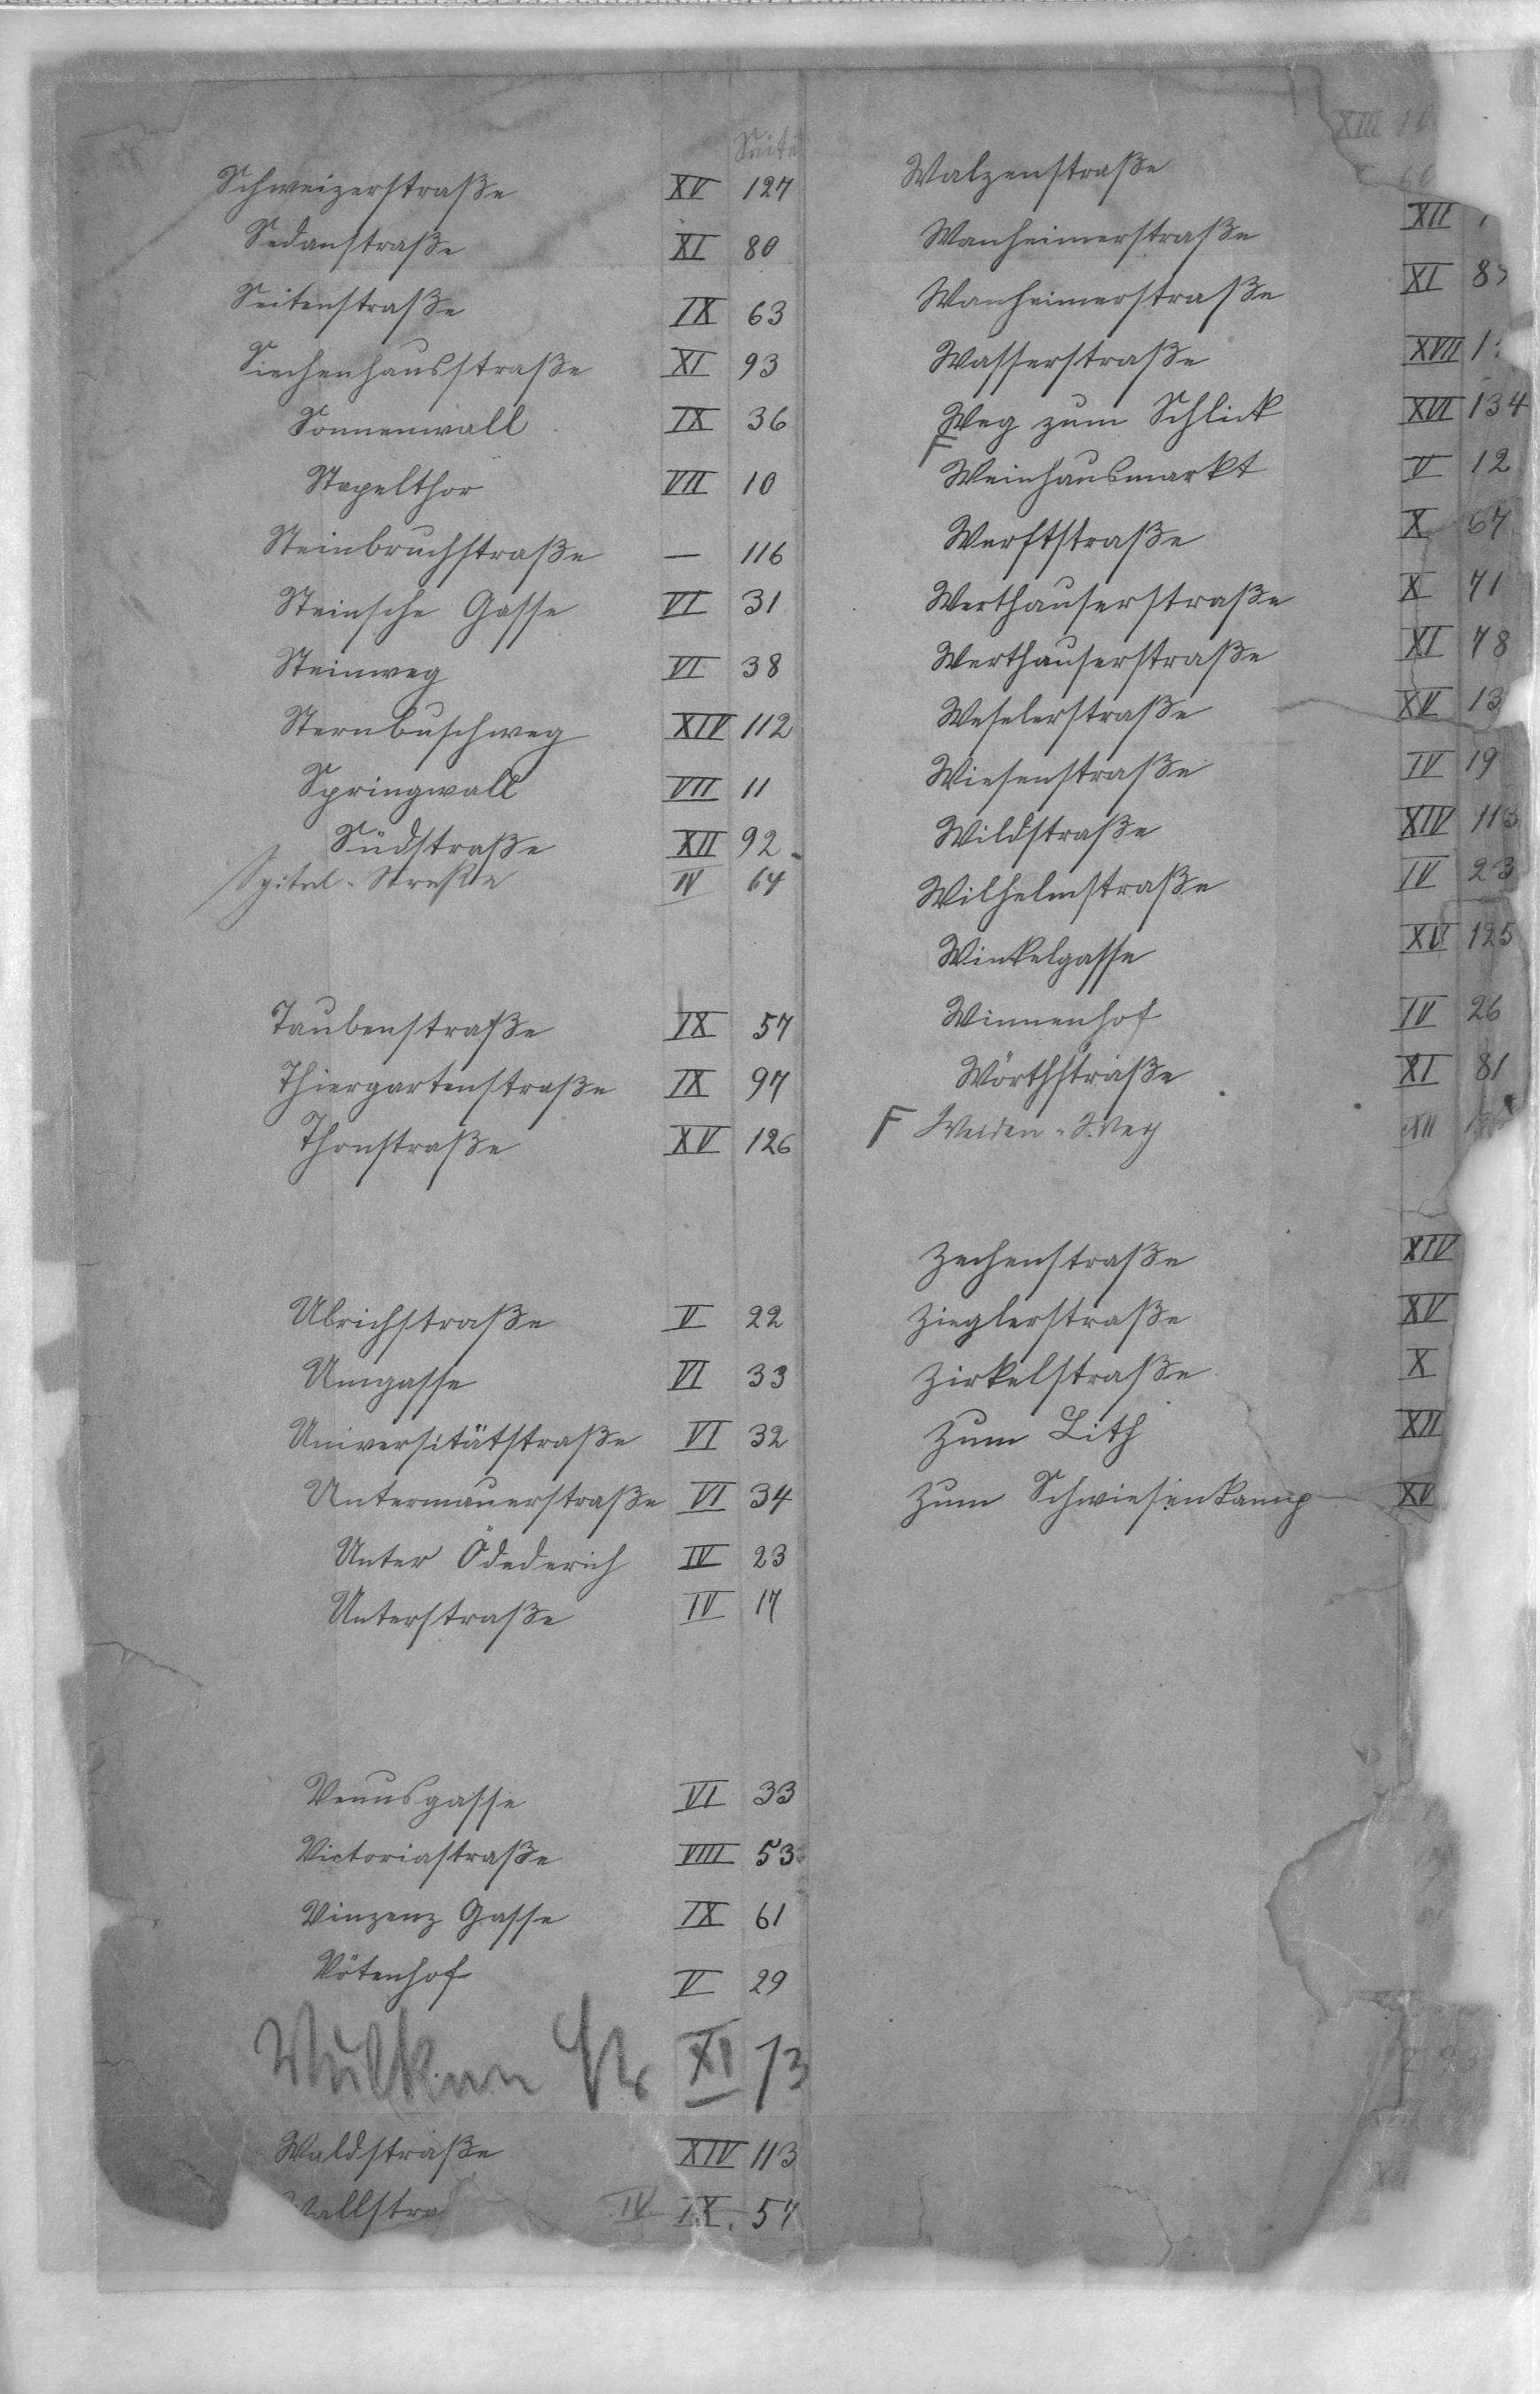 Seite
Schweizerstraße XV 127
Sedanstraße XI 80
Seitenstraße IX 63
Siechenhausstraße XI 93
Sonnenwall IX 36
Stapelthor VII 10
Steinbruchstraße — 116
Steinsche Gasse VI 31
Steinweg VI 38
Sternbuschweg XIV 112
Springwall VII 11
Südstraße XII 92
Spital-Straße IV 64
Taubenstraße IX 57
Thiergartenstraße IX 97
Thonstraße XV 126
Ulrichstraße V 22
Umgasse VI 33
Universitätstraße VI 32
Untermauerstraße VI 34
Unter Ödederich IV 23
Unterstraße IV 17
Venusgasse VI 33
Victoriastraße VIII 53
Vinzenz Gasse IX 61
Vötenhof V 29
Vulkan Str XI 73
Waldstraße XIV 113
Wallstra IV IX. 57
XIII
Walzenstraße
XII
Wanheimerstraße
XI 8
Wanheimerstraße
Wasserstraße XVII 1
Weg zum Schlick XVI 134
F
Weinhausmarkt V 12
Werftstraße X 67
Werthauserstraße X 71
Werthauserstraße XI 78
Weselerstraße XV 13
Wiesenstraße IV 19
Wildstraße XIV 113
Wilhelmstraße IV 23
Winkelgasse XV 125
Winnenhof IV 26
Wörthstraße XI 81
F Weiden-Weg XII
Zechenstraße XIV
Zieglerstraße XV
Zirkelstraße X
Zum Lith XII
Zum Schwiesenkamp XV